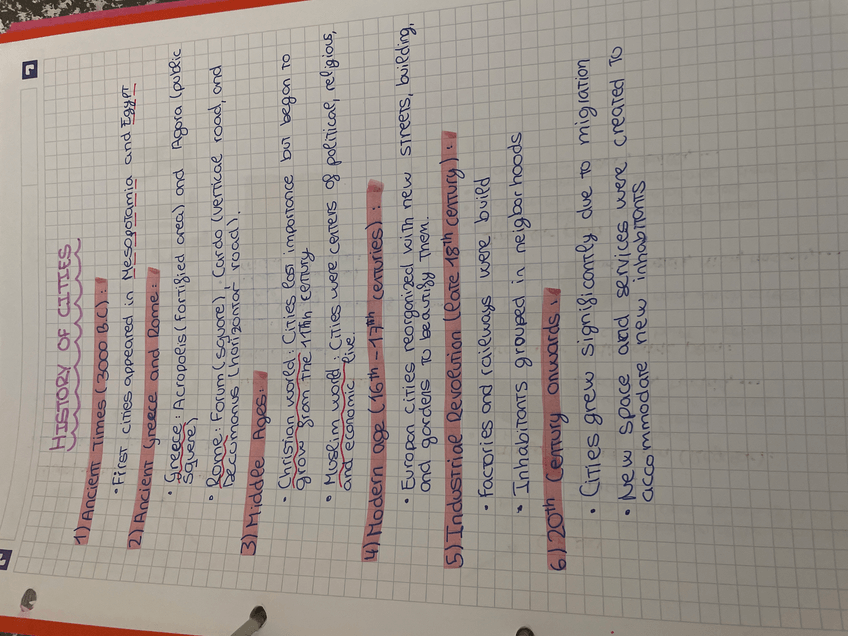 HISTORY OF CITIES
1) Ancient Times (3000 B.C):
• First cities appeared in Mesopotamia and Egypt
2) Ancient Greece and Rome:
• Greece: Acropolis (fortified area) and Agora (public
squere)
• Rome: Forum (square). Cardo (vertical road, and
Decomanus (horizontal road).
3) Middle Ages:
• Christian world: Cities lost importance but began to
grow from the 11th century
• Muslim world: Cities were centers of political, religious,
and economic live.
4) Modern age (16th-17th centuries):
• Europan cities reorganized with new streets, building,
and gardens to beautify them.
5) Industrial Revolution (late 18th century):
• Factories and railways were build
• Inhabitants grouped in neigborhoods
6) 20th Century onwards:
• Cities grew significantly due to migration
• New space and services were created to
accommodate new inhabitants